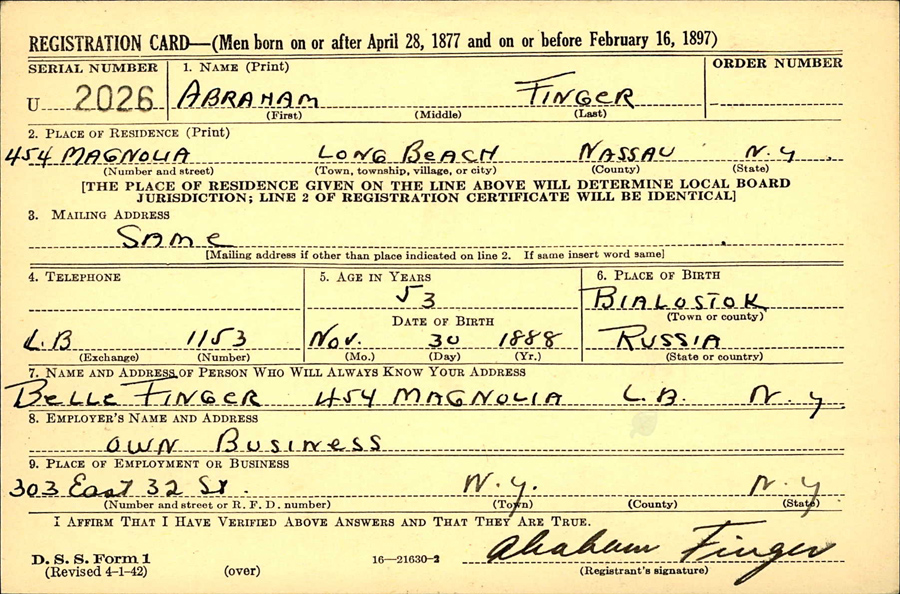 REGISTRATION CARD—(Men born on or after April 28, 1877 and on or before February 16, 1897)
SERIAL NUMBER 1. NAME (Print) ORDER NUMBER
U 2026 ABRAHAM FINGER
(First) (Middle) (Last)
2. PLACE OF RESIDENCE (Print)
454 MAGNOLIA LONG BEACH NASSAU N.Y.
(Number and street) (Town, township, village, or city) (County) (State)
[THE PLACE OF RESIDENCE GIVEN ON THE LINE ABOVE WILL DETERMINE LOCAL BOARD
JURISDICTION; LINE 2 OF REGISTRATION CERTIFICATE WILL BE IDENTICAL]
3. MAILING ADDRESS
SAME
[Mailing address if other than place indicated on line 2. If same insert word same]
4. TELEPHONE 5. AGE IN YEARS 6. PLACE OF BIRTH
53 BIALOSTOK
DATE OF BIRTH (Town or county)
L.B 1153 NOV. 30 1888 RUSSIA
(Exchange) (Number) (Mo.) (Day) (Yr.) (State or country)
7. NAME AND ADDRESS OF PERSON WHO WILL ALWAYS KNOW YOUR ADDRESS
BELLE FINGER 454 MAGNOLIA L.B. N.Y.
8. EMPLOYER'S NAME AND ADDRESS
OWN BUSINESS
9. PLACE OF EMPLOYMENT OR BUSINESS
303 East 32 St. N.Y. N.Y
(Number and street or R. F. D. number) (Town) (County) (State)
I AFFIRM THAT I HAVE VERIFIED ABOVE ANSWERS AND THAT THEY ARE TRUE.
D. S. S. Form 1
(Revised 4-1-42) (over) 16—21630-2 Abraham Finger
(Registrant's signature)